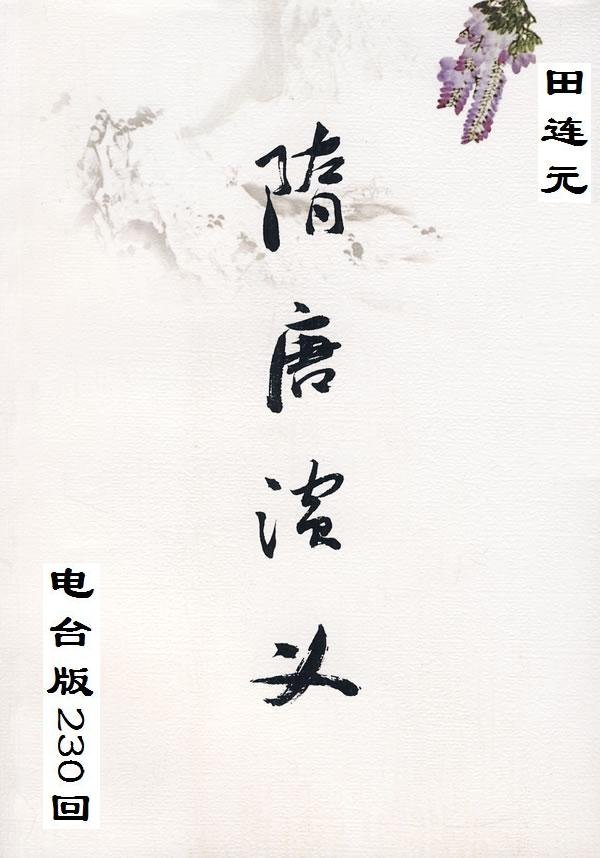 田连元
隋唐演义
电台版230回